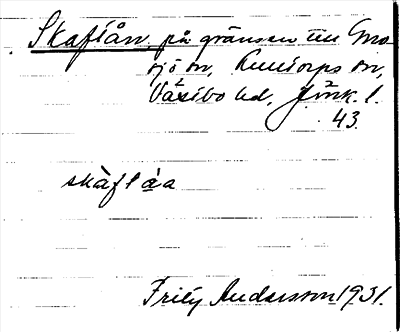 Skaflån, på gränsen till Gno
sjö sn, Kulltorps sn,
Västbo hd, Jönk. l.
43.
skàflá̱a
Fritz Andersson 1931.